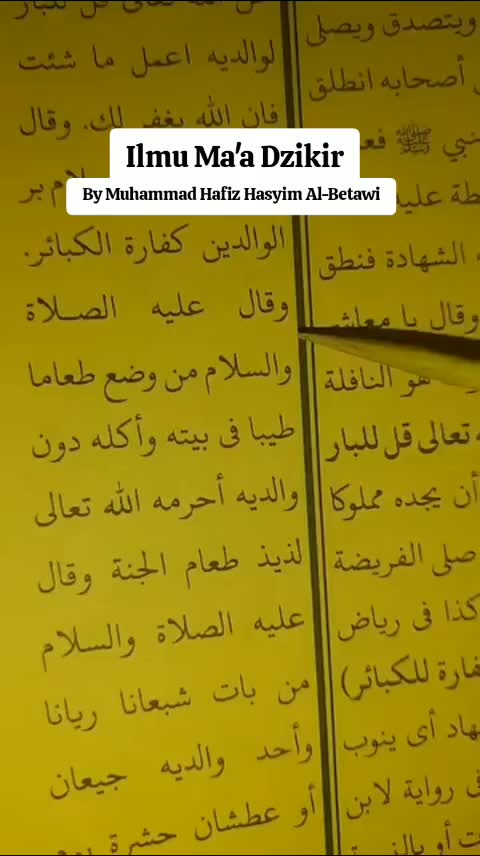 Ilmu Ma'a Dzikir
By Muhammad Hafiz Hasyim Al-Betawi
لوالديه اعمل ما شئت
فان الله يغفر لك. وقال
الوالدين كفارة الكبائر.
وقال عليه الصلاة
والسلام من وضع طعاما
طيبا فى بيته وأكله دون
والديه أحرمه الله تعالى
لذيذ طعام الجنة وقال
عليه الصلاة والسلام
من بات شبعانا ريانا
وأحد والديه جيعان
أو عطشان حشره
ويتصدق ويصلى
أصحابه انطلق
ﷺ
طة عليه
الشهادة فنطق
وقال يا معاشر
هو النافلة
تعالى قل للبار
أن يجده مملوكا
صلى الفريضة
كذا فى رياض
فارة للكبائر)
هاد أى ينوب
فى رواية لابن